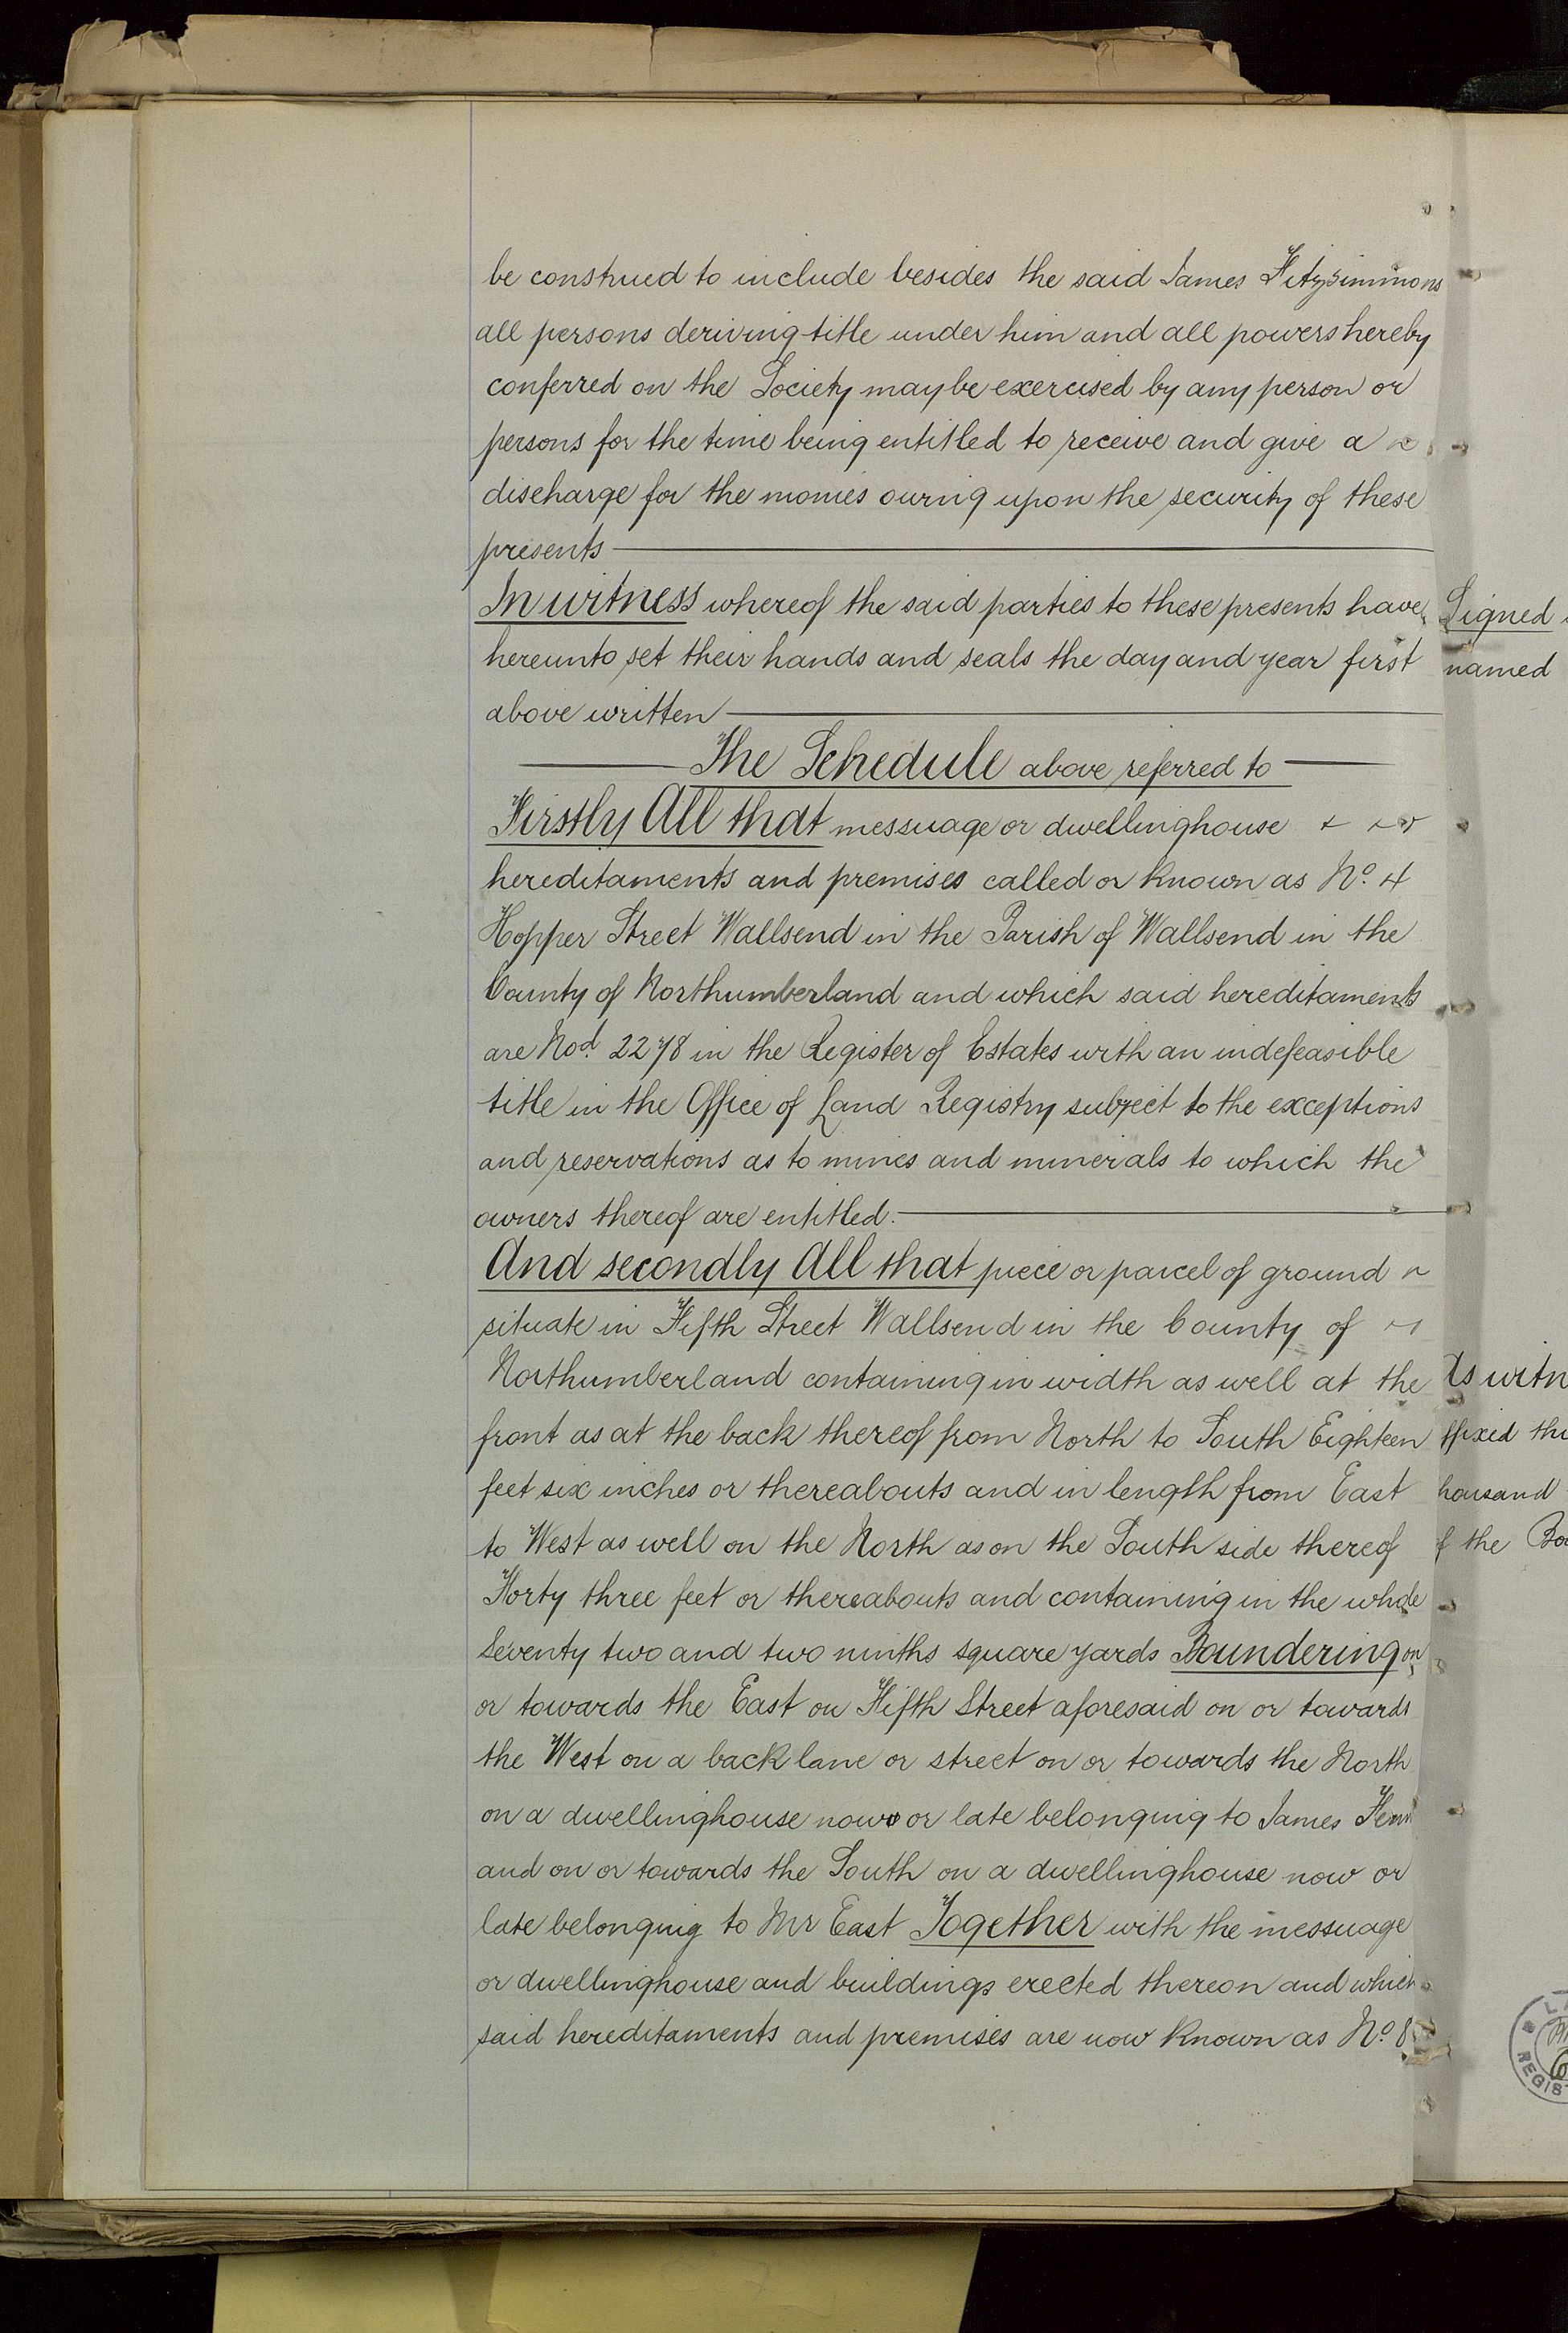 be construed to include besides the said James Fitzsimmons
all persons deriving title under him and all powers hereby
conferred on the Society may be exercised by any person or
persons for the time being entitled to receive and give a
discharge for the monies owing upon the security of these
presents
In witness whereof the said parties to these presents have
hereunto set their hands and seals the day and year first
above written
The Schedule above referred to
Firstly All that messuage or dwellinghouse
hereditaments and premises called or known as No. 4
Hopper Street Wallsend in the Parish of Wallsend in the
County of Northumberland and which said hereditaments
are Nod. 2278 in the Register of Estates with an indefeasible
title in the Office of Land Registry subject to the exceptions
and reservations as to mines and minerals to which the
owners thereof are entitled.
And secondly All that piece or parcel of ground
situate in Fifth Street Wallsend in the County of
Northumberland containing in width as well at the
front as at the back thereof from North to South Eighteen
feet six inches or thereabouts and in length from East
to West as well on the North as on the South side thereof
Forty three feet or thereabouts and containing in the whole
Seventy two and two ninths square yards Boundering on
or towards the East on Fifth Street aforesaid on or towards
the West on a back lane or street on or towards the North
on a dwellinghouse now or late belonging to James
and on or towards the South on a dwellinghouse now or
late belonging to Mr East Together with the messuage
or dwellinghouse and buildings erected thereon and which
said hereditaments and premises are now known as No. 8
Signed
named